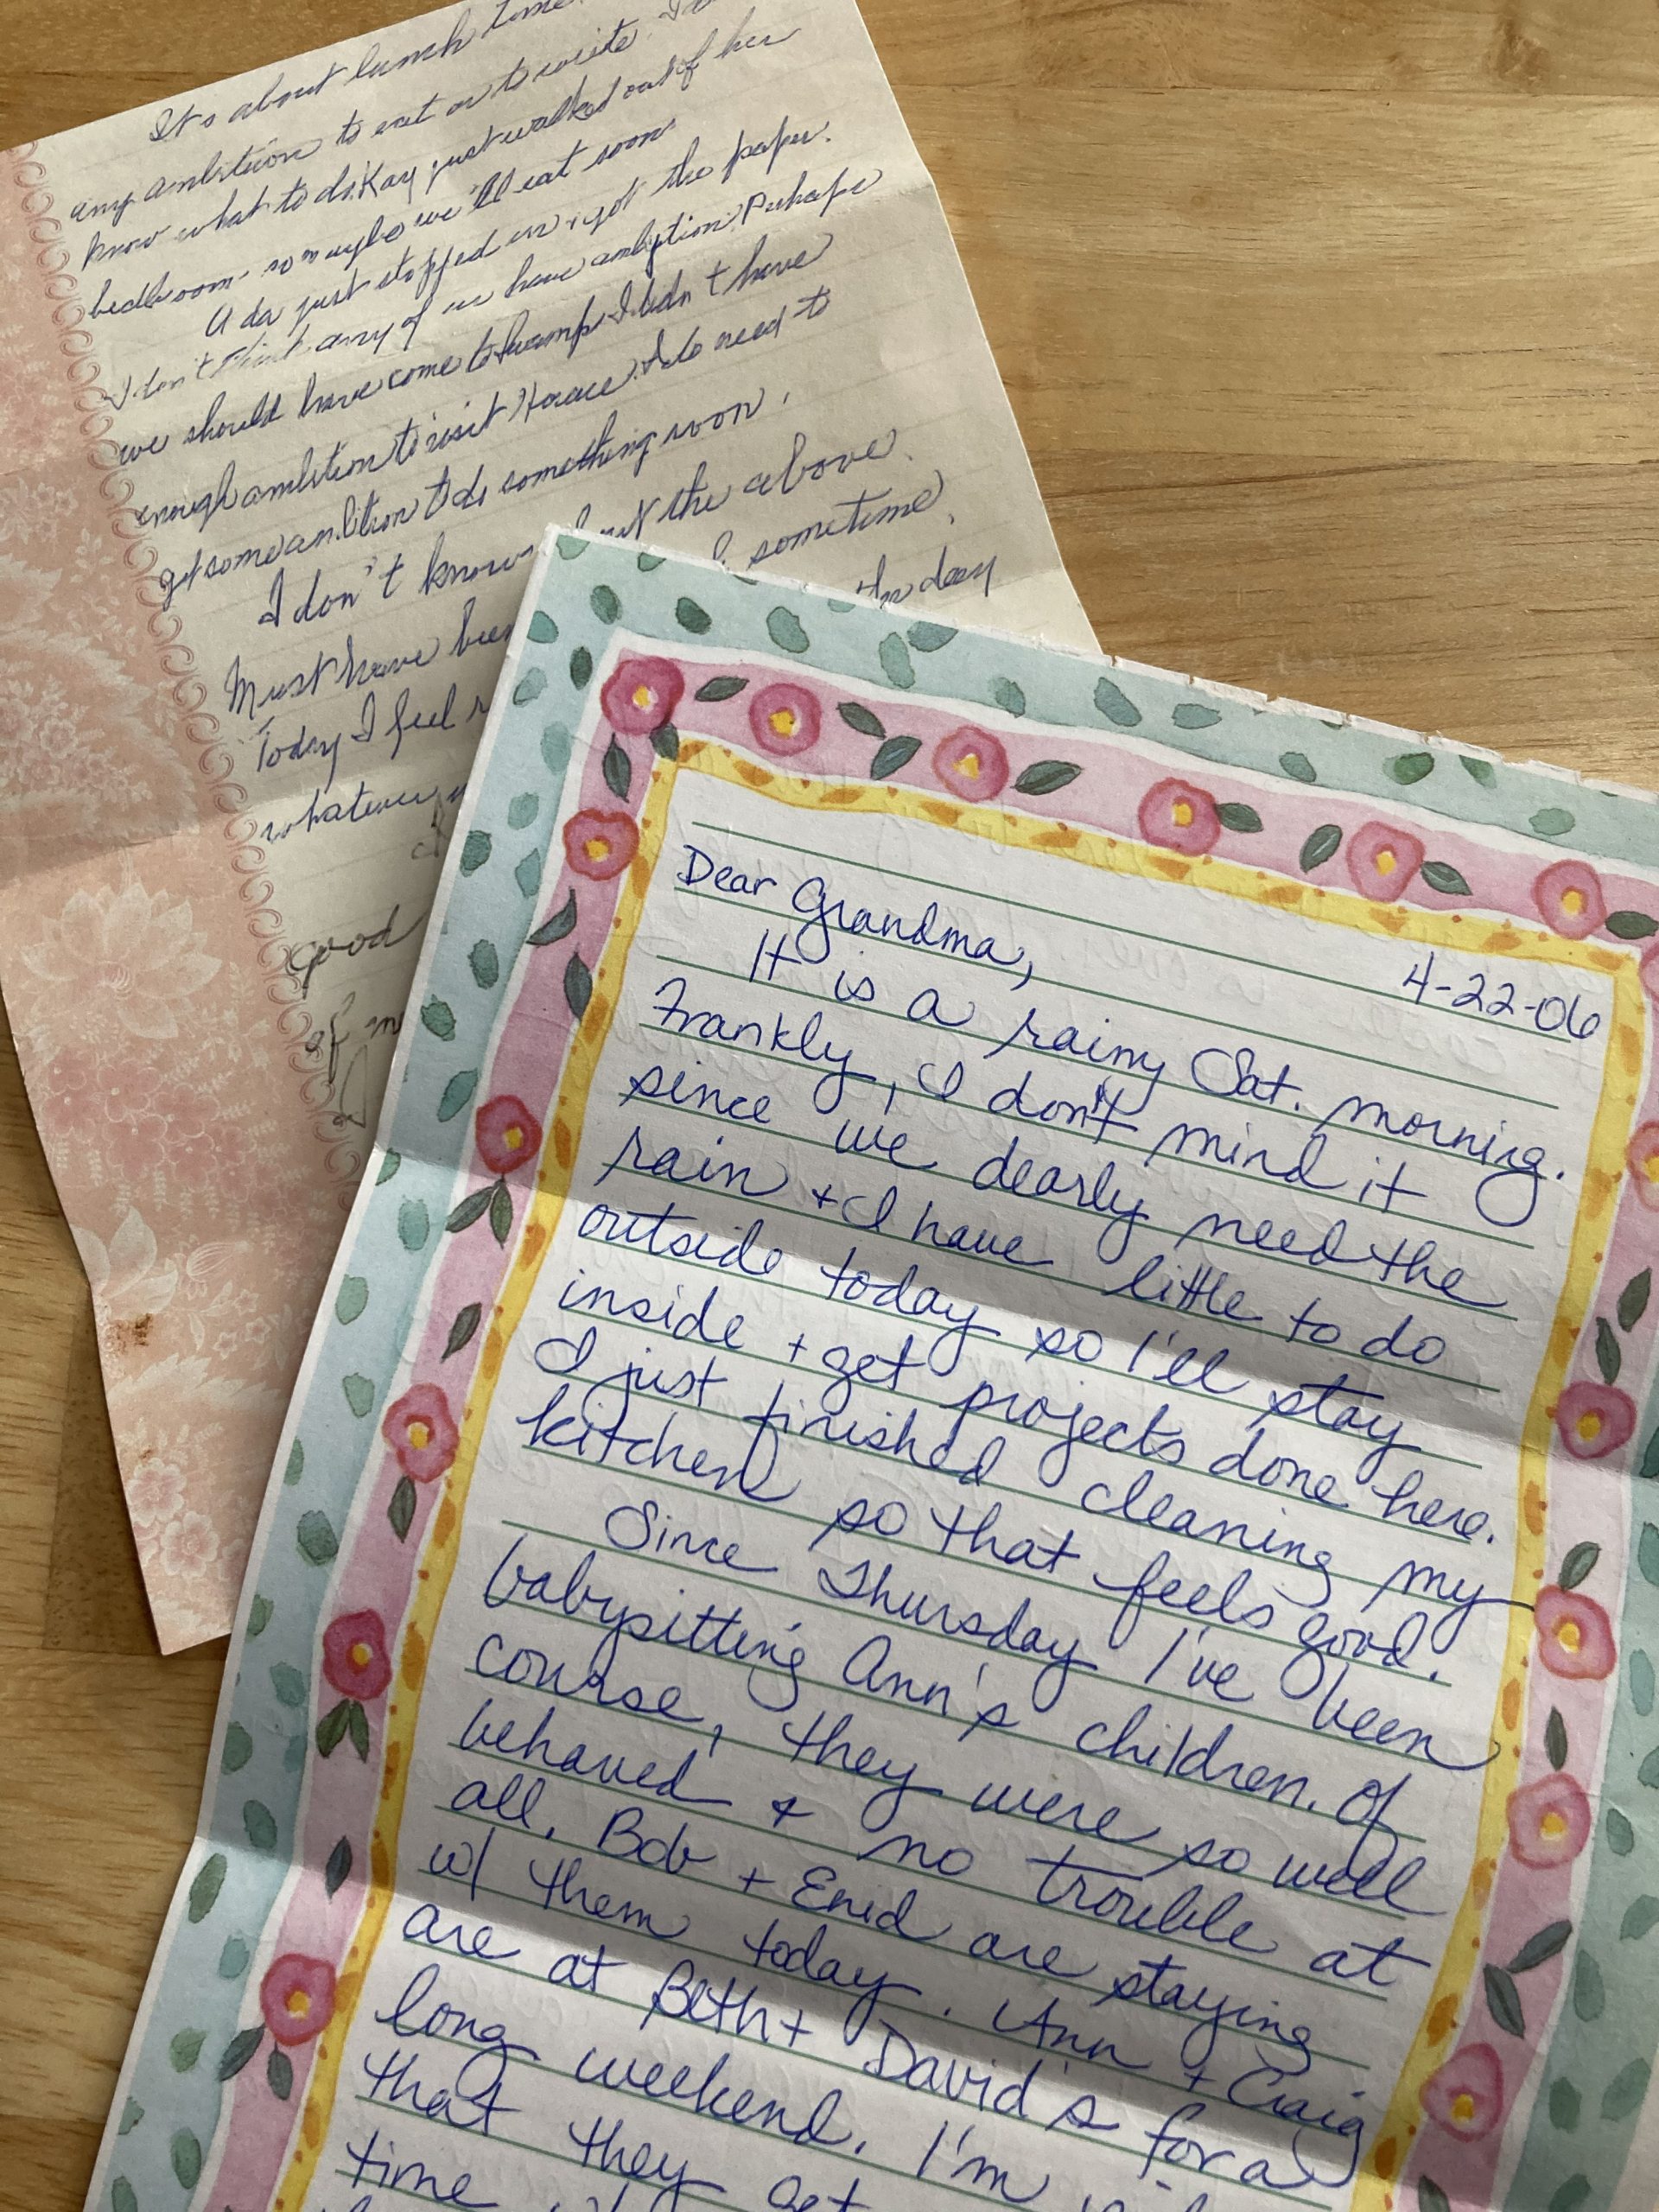 It's about lunch time.
any ambition to eat or to write. I
know what to do. Kay just walked out of her
bedroom. so maybe we'll eat soon
Ada just stopped in + got the paper.
I don't think any of us have ambition. Perhaps
we should have come to I didn't have
enough ambition to visit Horace. I do need to
get some ambition to do something soon.
I don't know about the above.
Must have been sometime.
Today I feel day
whatever
good
of
Dear Grandma,
4-22-06
It is a rainy Sat. morning.
Frankly, I don't mind it
since we dearly need the
rain + I have little to do
outside today so I'll stay
inside + get projects done here.
I just finished cleaning my
kitchen so that feels good.
Since Thursday I've been
babysitting Ann's children. Of
course, they were so well
behaved + no trouble at
all. Bob + Enid are staying
w/ them today. Ann + Craig
are at Beth + David's for a
long weekend. I'm
that they get
time